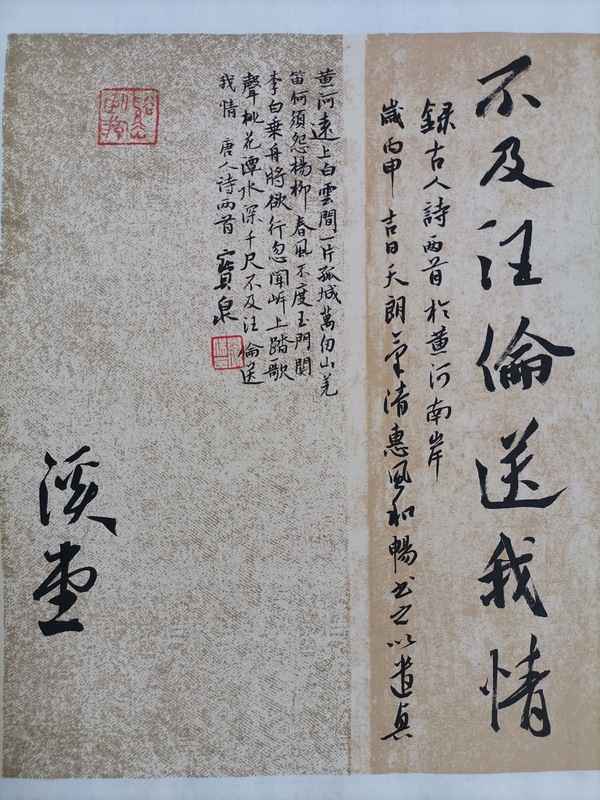 不及汪倫送我情
録古人詩兩首於黄河南岸
歲丙申吉日天朗氣清惠風和暢書之以遣
黄河遠上白雲間一片孤城萬仞山羌
笛何須怨楊柳春風不度玉門関
李白乗舟將欲行忽聞岸上踏歌
聲桃花潭水深千尺不及汪倫送
我情 唐人詩兩首 寶泉
溪堂